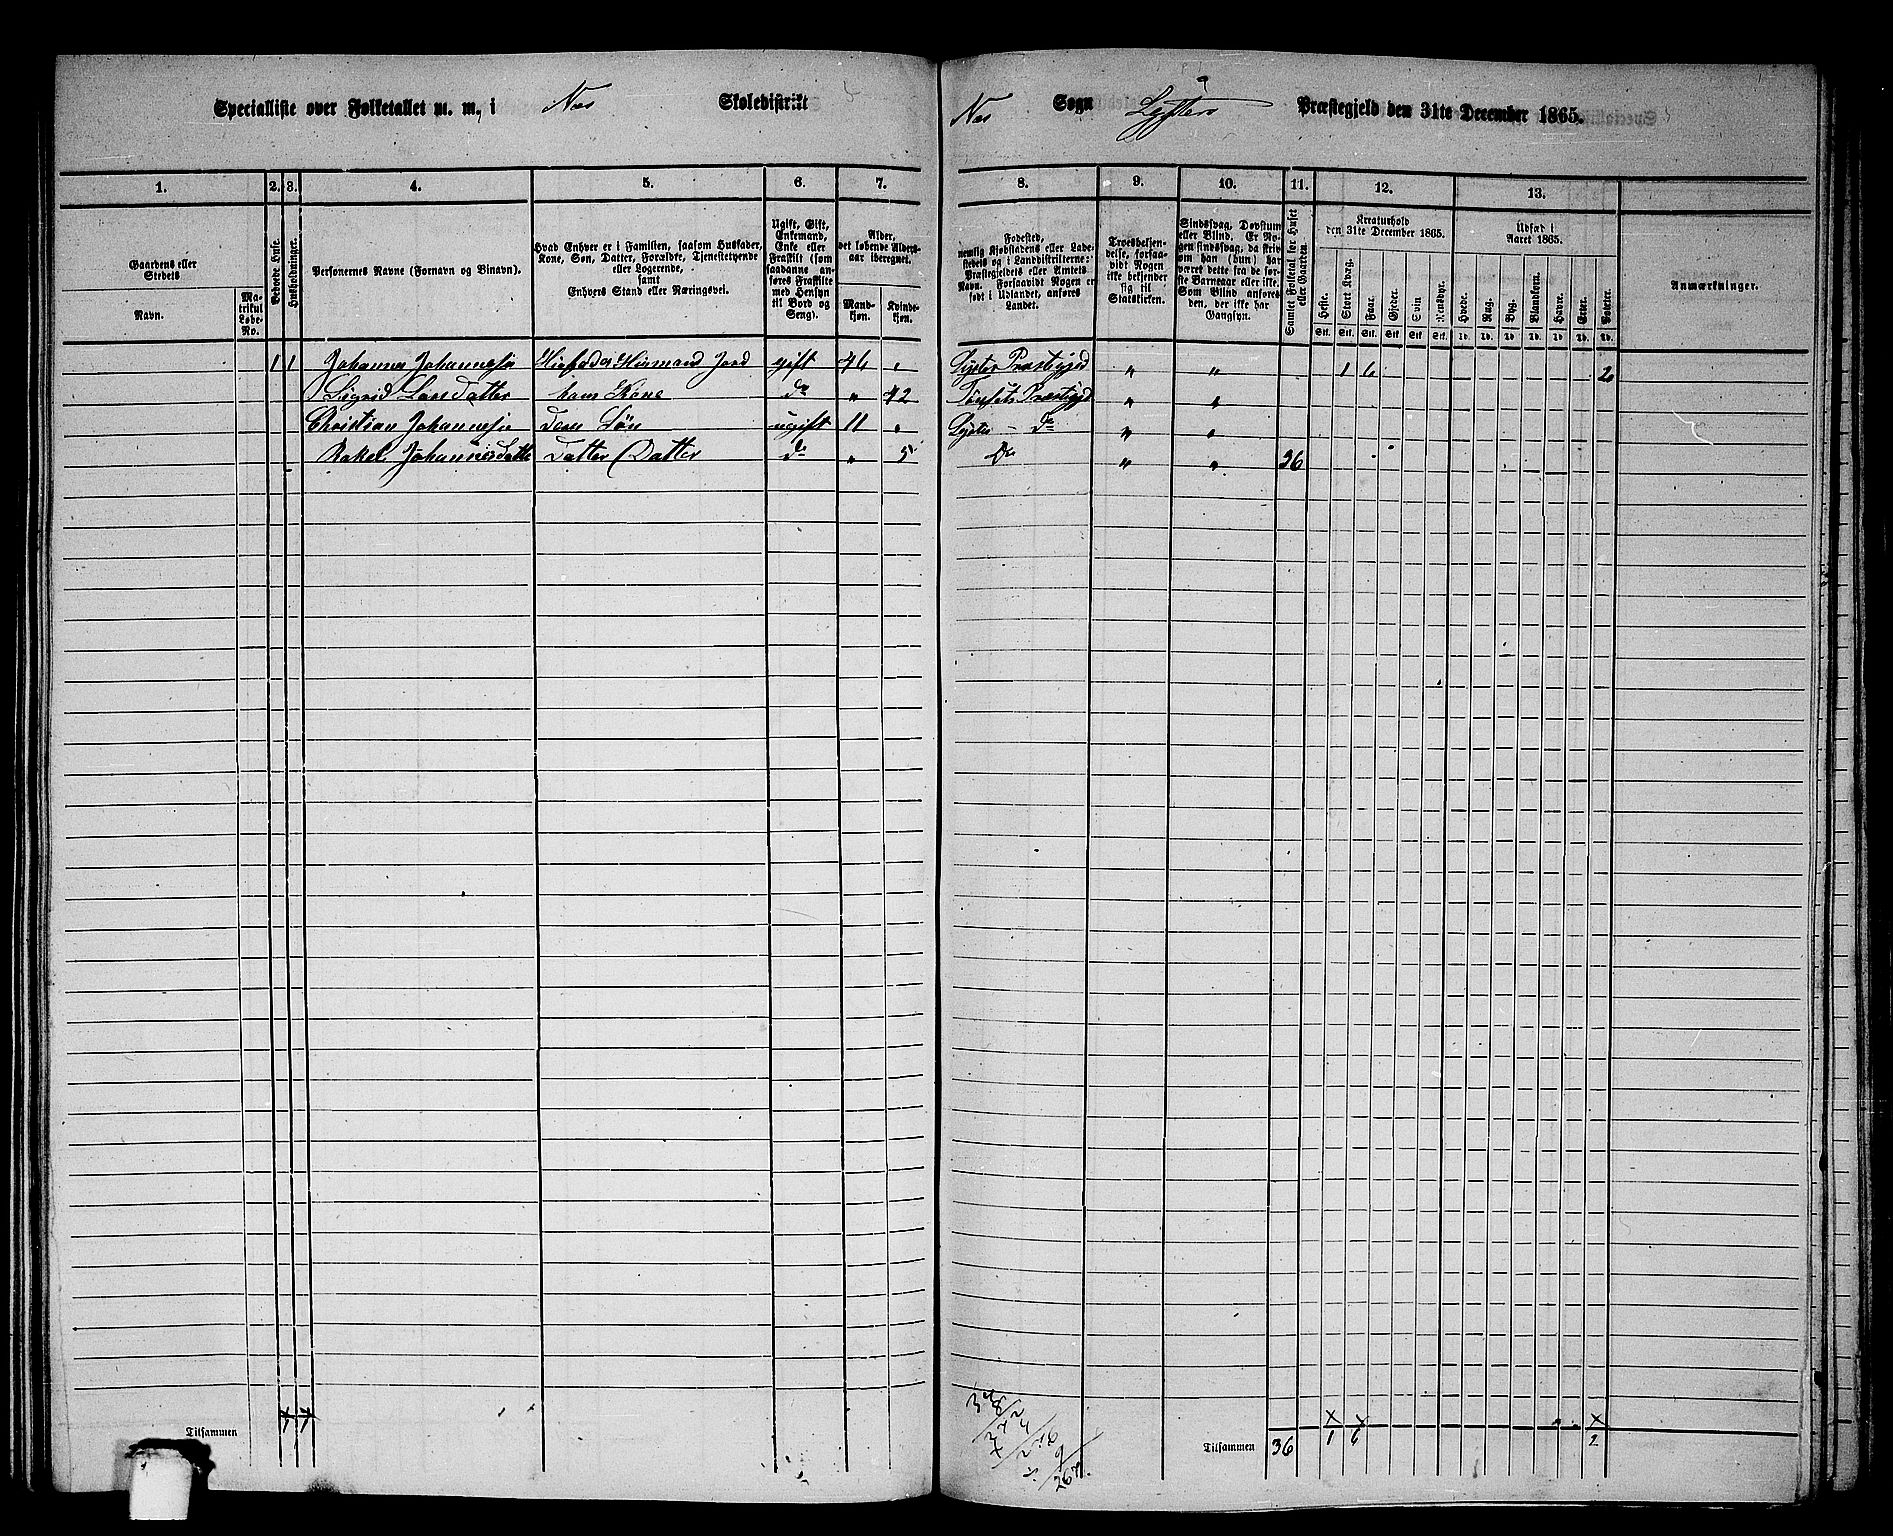 Specialliste over Folketallet m. m. i Nes Skoledistrikt
Nes Sogn Lysters Præstegjeld den 31te December 1865.
1. 2. 3. 4. 5. 6. 7. 8. 9. 10. 11. 12. 13.
Gaardens eller Stedets
Navn.
Matrikul Løbe-No.
Beboede Huse.
Husholdninger.
Personernes Navne (Fornavn og Binavn).
Hvad Enhver er i Familien, saasom Husfader,
Kone, Søn, Datter, Forældre, Tjenestetyende
eller Logerende,
samt
Enhvers Stand eller Næringsvei.
Ugift, Gift,
Enkemand,
Enke eller
Fraskilt (som
saadanne an-
føres Fraskilte
med Hensyn
til Bord og
Seng).
Alder,
det løbende Alders-
aar iberegnet.
Mand-
kjøn.
Kvinde-
kjøn.
Fødested,
nemlig Kjøbstadens eller Lade-
stedets og i Landdistrikterne:
Præstegjeldets eller Amtets
Navn. Forsaavidt Nogen er
født i Udlandet, anføres
Landet.
Troesbekjen-
delse, forsaa-
vidt Nogen
ikke bekjender
sig til
Statskirken.
Sindssvag, Døvstum
eller Blind. Er No-
gen sindssvag, da skriv
om han (hun) har
været dette fra de før-
ste Barneaar eller ikke.
Som Blind anføres
den, der ikke har
Gangsyn.
Samlet Folketal for Huset
eller Gaarden.
Kreaturhold
den 31te December 1865.
Heste. Stort Kvæg. Faar. Gjeder. Svin Rensdyr.
Udsæd i
Aaret 1865.
Hvede. Rug. Byg. Blandkorn. Havre. Erter. Poteter.
Anmærkninger.
1 1 Johannes Johannessøn Husfader Huusmand Jord gift 46 " Lyster Præstegjeld " " 1 6 2
Sigrid Larsdatter hans Kone do " 42 Præstegjd " "
Christian Johannessøn deres Søn ugift 11 " Lyster — do " "
Rakel Johannesdatter Datter (Datter do " 5 Do " " 36
Tilsammen
Tilsammen 36 1 6 2